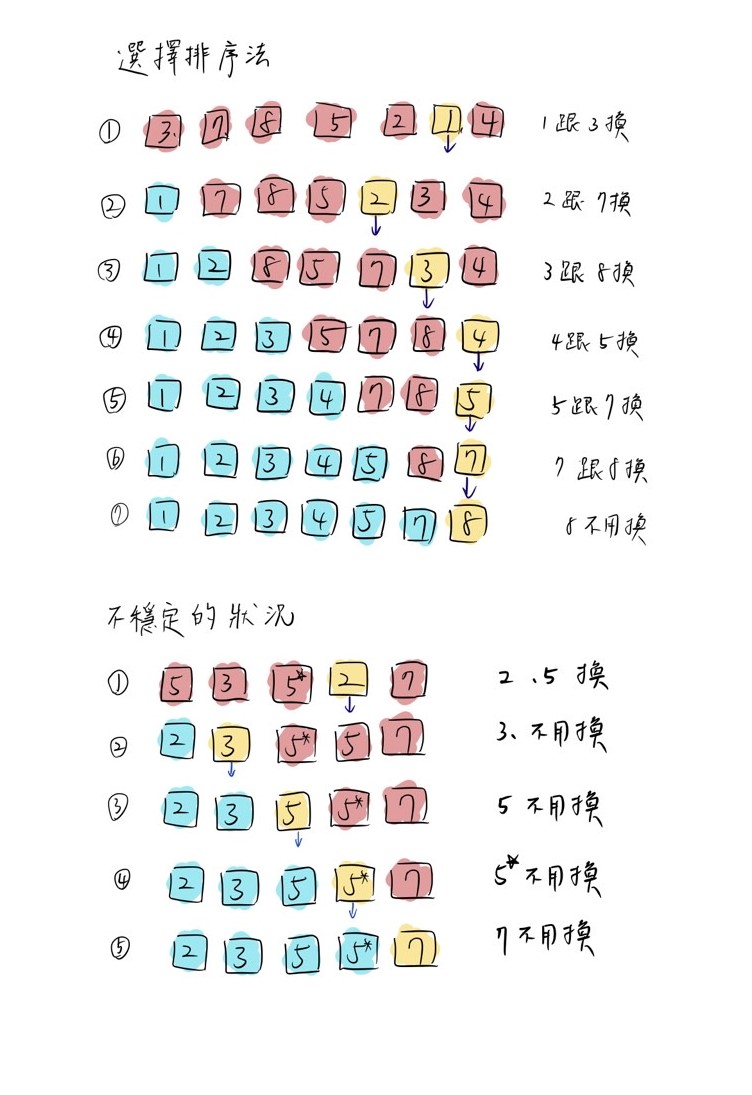 選擇排序法
① 3 7 8 5 2 1 4 1跟3換
② 1 7 8 5 2 3 4 2跟7換
③ 1 2 8 5 7 3 4 3跟8換
④ 1 2 3 5 7 8 4 4跟5換
⑤ 1 2 3 4 7 8 5 5跟7換
⑥ 1 2 3 4 5 8 7 7跟8換
⑦ 1 2 3 4 5 7 8 8不用換
不穩定的狀況
① 5 3 5* 2 7 2、5 換
② 2 3 5* 5 7 3、不用換
③ 2 3 5 5* 7 5 不用換
④ 2 3 5 5* 7 5*不用換
⑤ 2 3 5 5* 7 7不用換